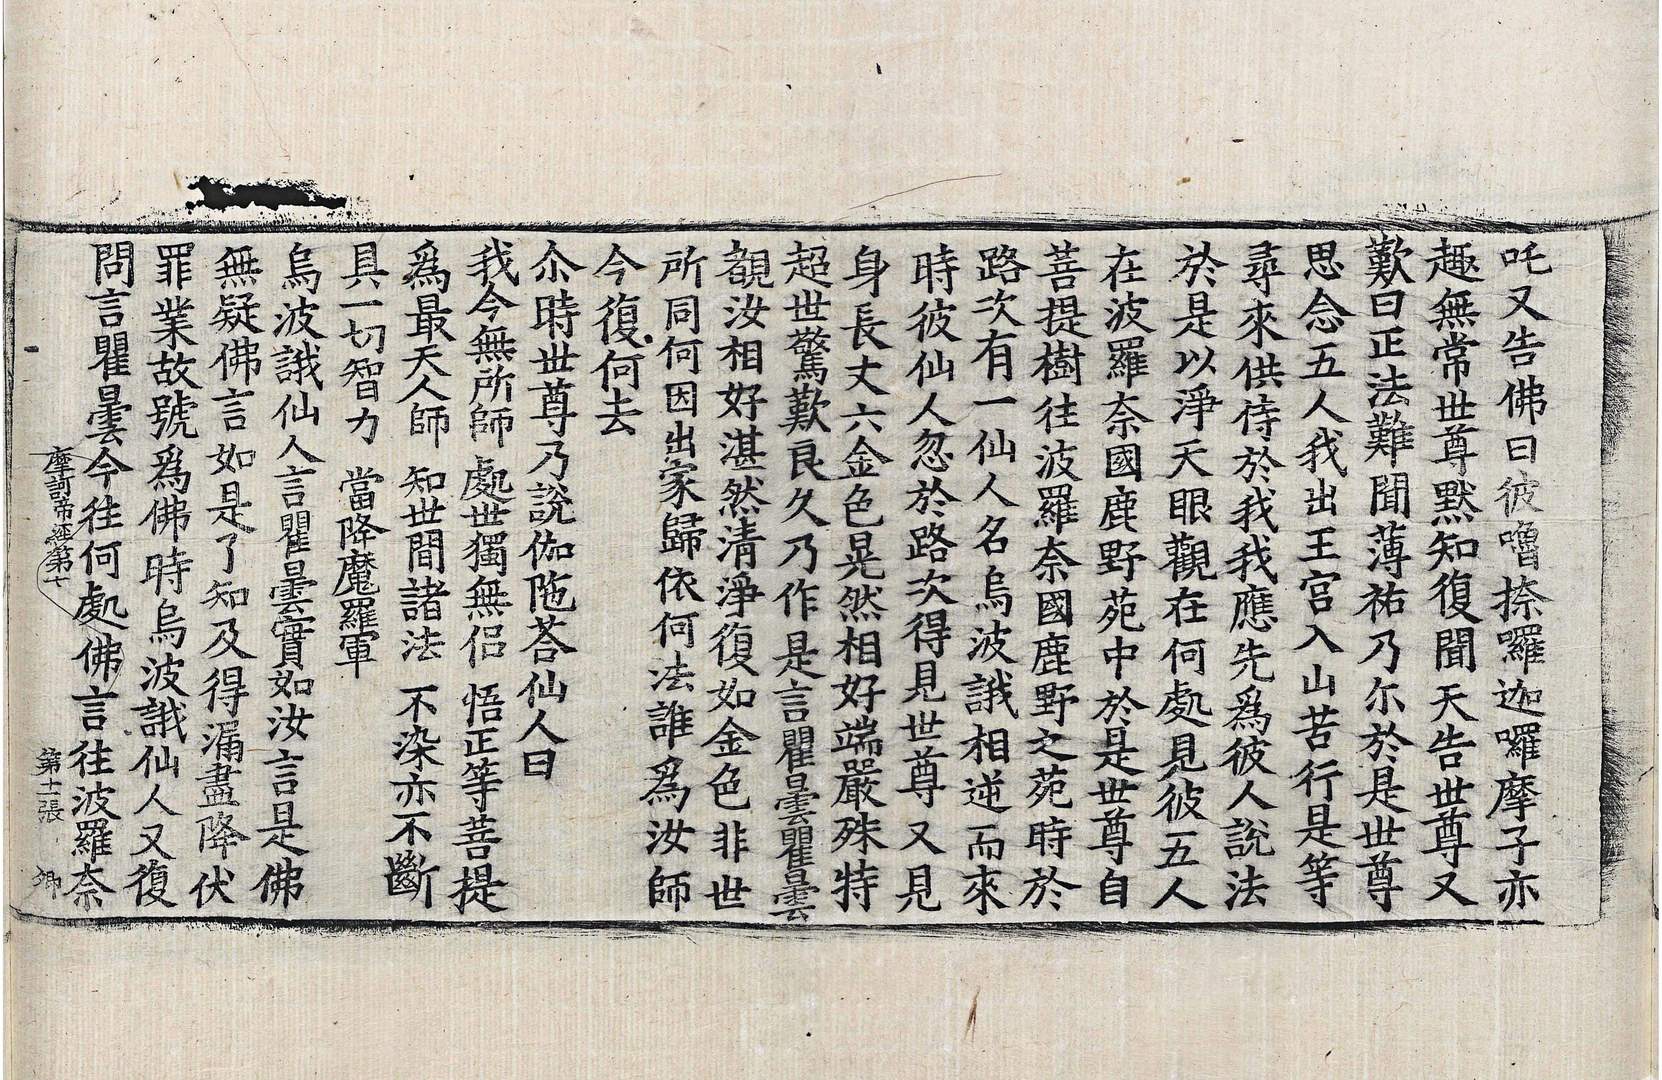 吒又告佛曰彼嚕捺囉迦囉摩子亦
趣無常世尊默知復聞天告世尊又
歎曰正法難聞薄祐乃尔於是世尊
思念五人我出王宫入山苦行是等
尋來供侍於我我應先爲彼人說法
於是以淨天眼觀在何處見彼五人
在波羅奈國鹿野苑中於是世尊自
菩提樹往波羅奈國鹿野之苑時於
路次有一仙人名烏波誐相逆而來
時彼仙人忽於路次得見世尊又見
身長丈六金色晃然相好端嚴殊特
超世驚歎良久乃作是言瞿曇瞿曇
覩汝相好湛然清淨復如金色非世
所同何因出家歸依何法誰爲汝師
今復何去
尒時世尊乃說伽陁荅仙人曰
我今無所師 處世獨無侣 悟正等菩提
爲最天人師 知世間諸法 不染亦不斷
具一切智力 當降魔羅軍
烏波誐仙人言瞿曇實如汝言是佛
無疑佛言如是了知及得漏盡降伏
罪業故號爲佛時烏波誐仙人又復
問言瞿曇今往何處佛言往波羅奈
摩訶帝經第七 第十一張 卿